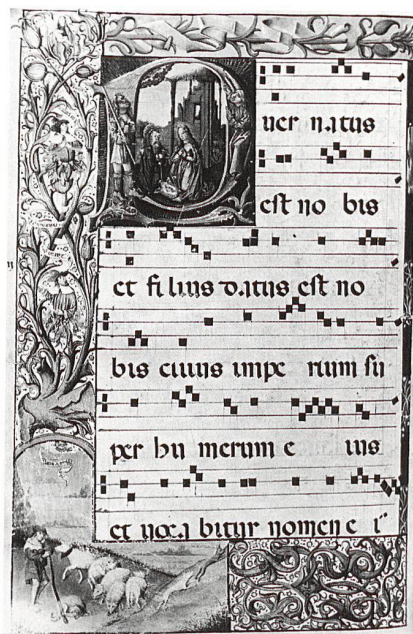 Puer natus
est no bis
et filius datus est no
bis cuius impe rium su
per hu merum e ius
et voca bitur nomen e i